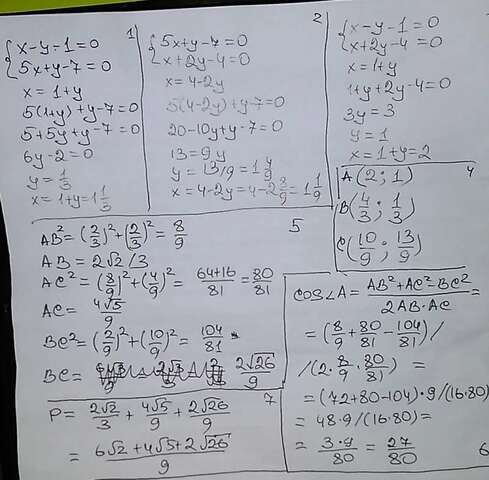 1
{x-y-1=0
{5x+y-7=0
x=1+y
5(1+y)+y-7=0
5+5y+y-7=0
6y-2=0
y=1/3
x=1+y=1 1/3
2
{5x+y-7=0
{x+2y-4=0
x=4-2y
5(4-2y)+y-7=0
20-10y+y-7=0
13=9y
y=13/9=1 4/9
x=4-2y=4-2 8/9=1 1/9
{x-y-1=0
{x+2y-4=0
x=1+y
1+y+2y-4=0
3y=3
y=1
x=1+y=2
4
A(2; 1)
B(4/3; 1/3)
C(10/9; 13/9)
5
AB²=(2/3)²+(2/3)²=8/9
AB=2√2/3
AC²=(8/9)²+(4/9)²=(64+16)/81=80/81
AC=4√5/9
BC²=(2/9)²+(10/9)²=104/81
BC= 2√26/9
7
P=2√2/3+4√5/9+2√26/9
=(6√2+4√5+2√26)/9
cos∠A=(AB²+AC²-BC²)/(2AB·AC)=
=(8/9+80/81-104/81)/
/(2·8/9·80/81)=
=(72+80-104)·9/(16·80)
=48·9/(16·80)=
=(3·9)/80=27/80
6